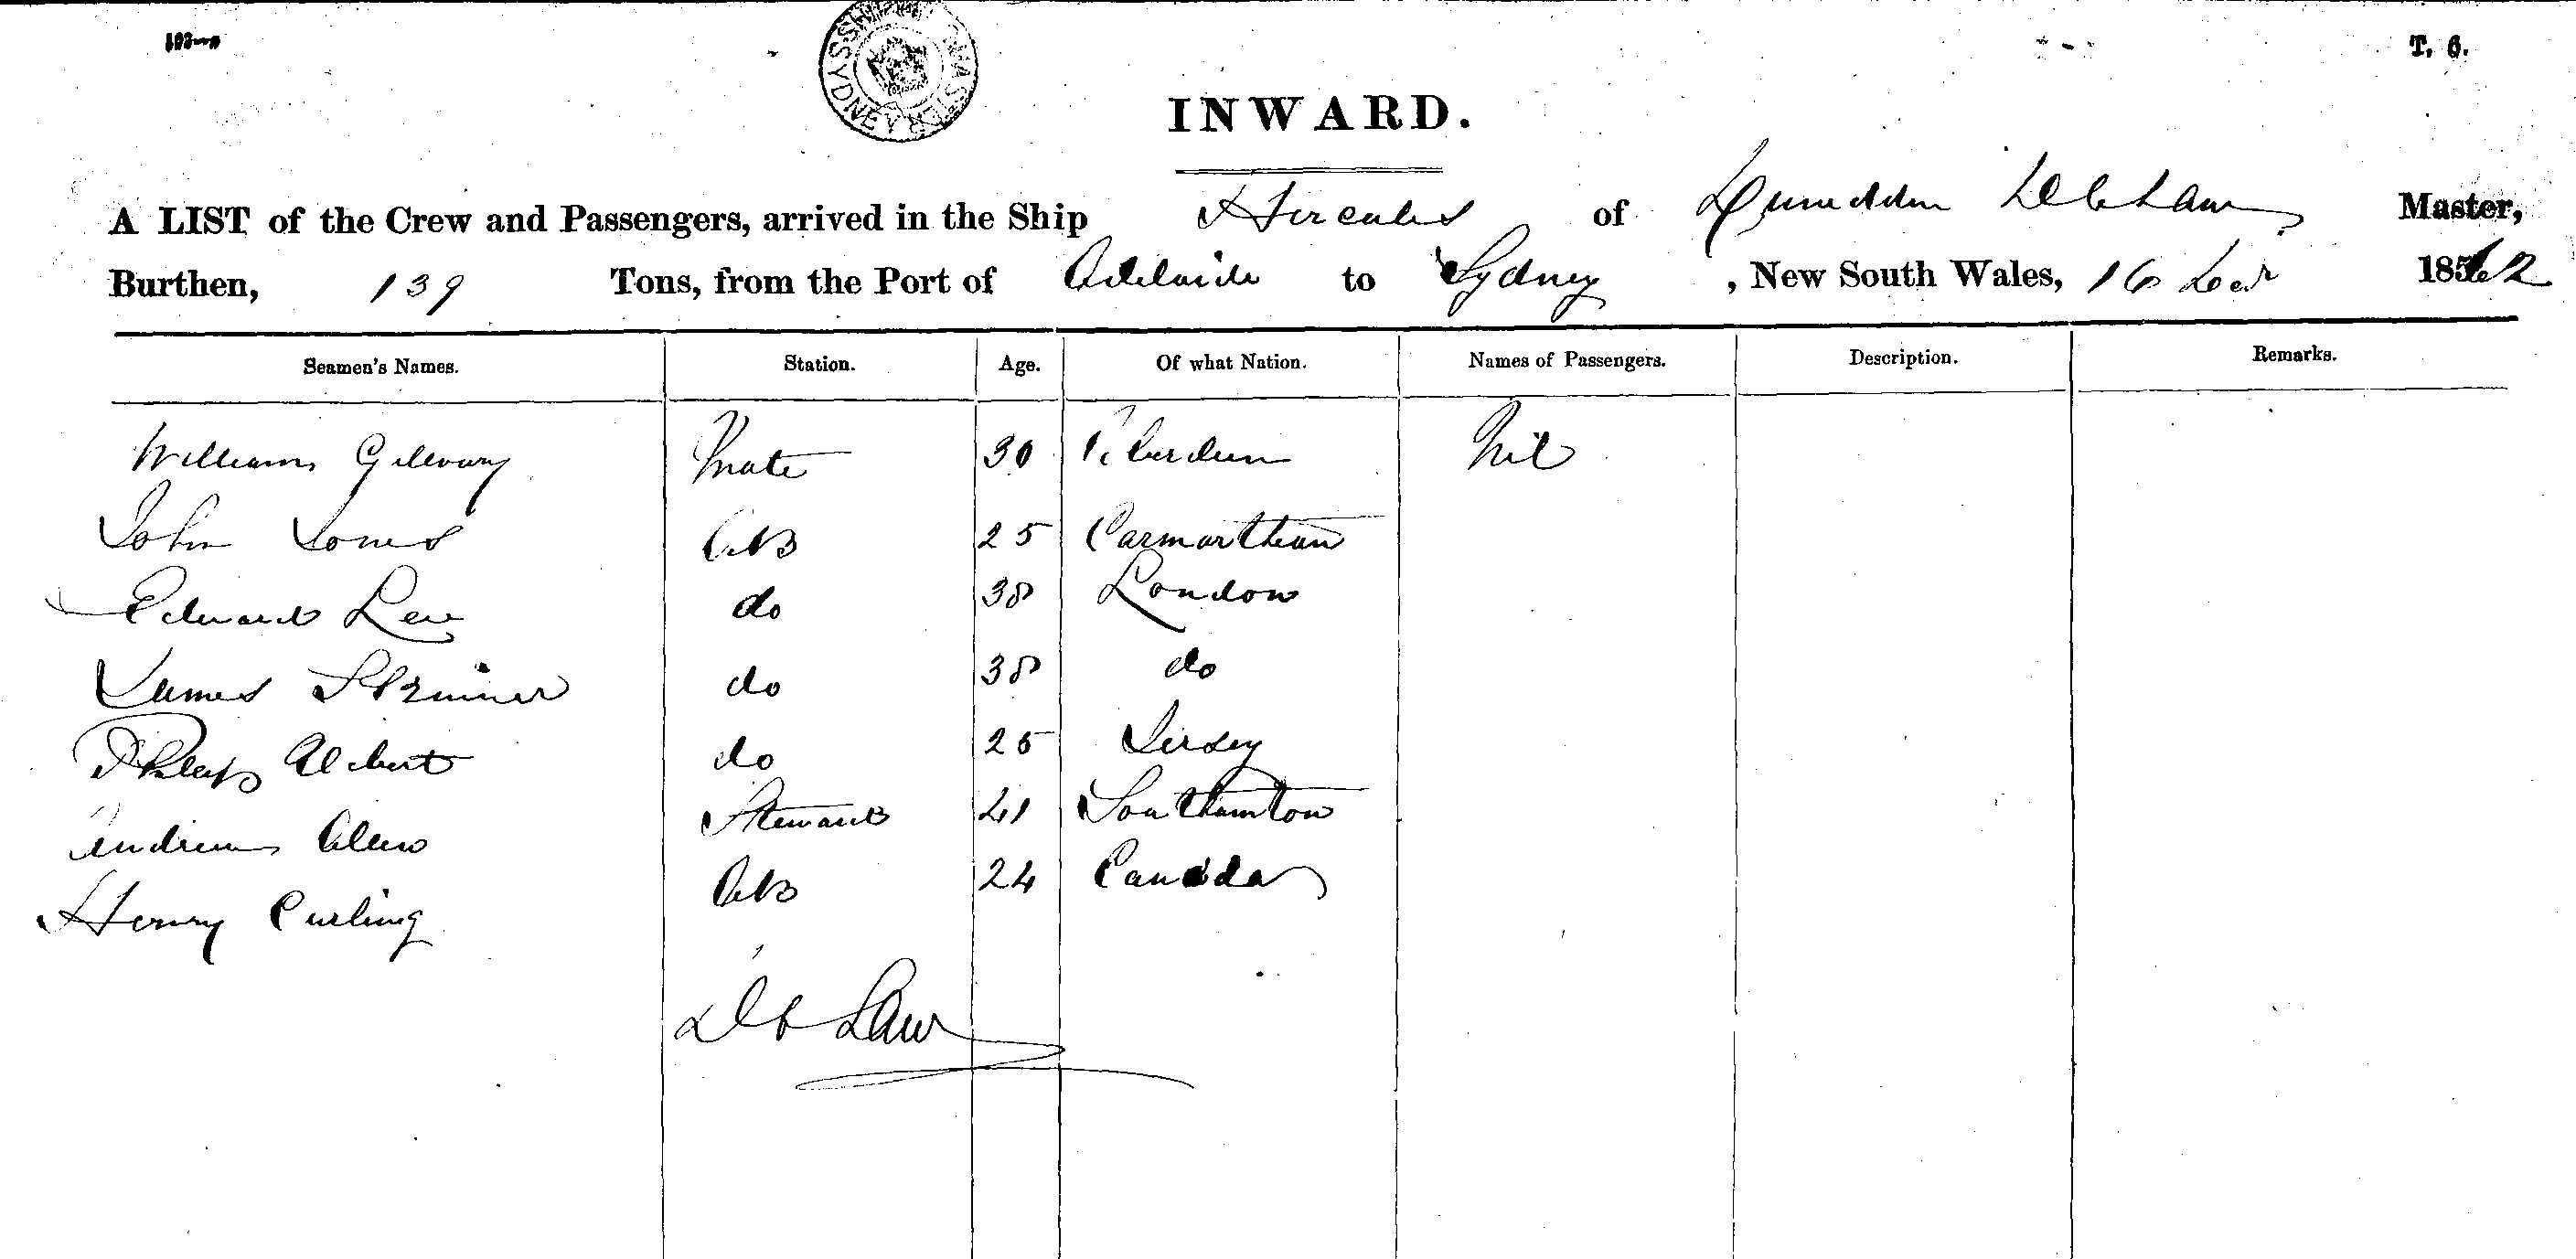 T. 6.
SYDNEY
INWARD.
A LIST of the Crew and Passengers, arrived in the Ship Hercules of Dunedin D C Law Master,
Burthen, 139 Tons, from the Port of Adelaide to Sydney , New South Wales, 16 1862
Seamen's Names. Station. Age. Of what Nation. Names of Passengers. Description. Remarks.
William Gilvary Mate 30 Aberdeen Nil
John Jones AB 25 Carmarthean
Edward Lew do 38 London
James do 38 do
Philip Albert do 25 Jersey
Andrew Allen Steward 41 Southamton
Henry Curling AB 24 Canada
D C Law